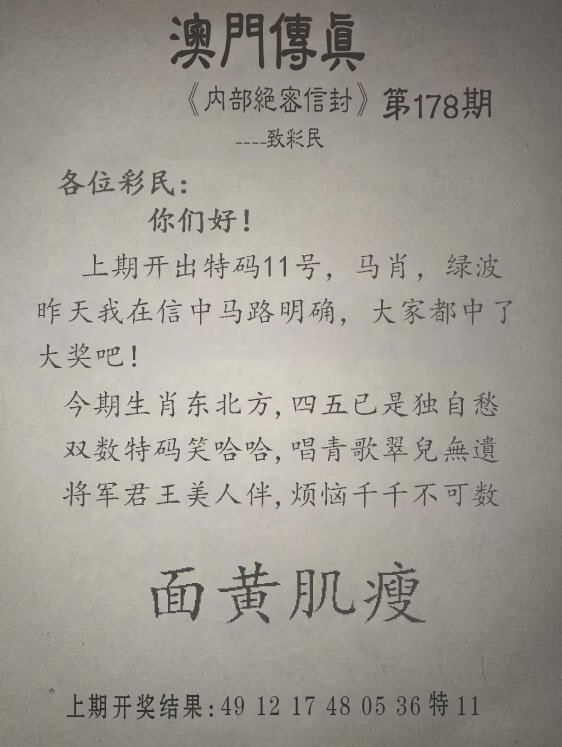 澳門傳眞
《内部絕密信封》第178期
----致彩民
各位彩民：
你们好！
上期开出特码11号，马肖，绿波
昨天我在信中马路明确，大家都中了
大奖吧！
今期生肖东北方,四五已是独自愁
双数特码笑哈哈,唱青歌翠兒無遺
将军君王美人伴,烦恼千千不可数
面黄肌瘦
上期开奖结果:49 12 17 48 05 36 特 11